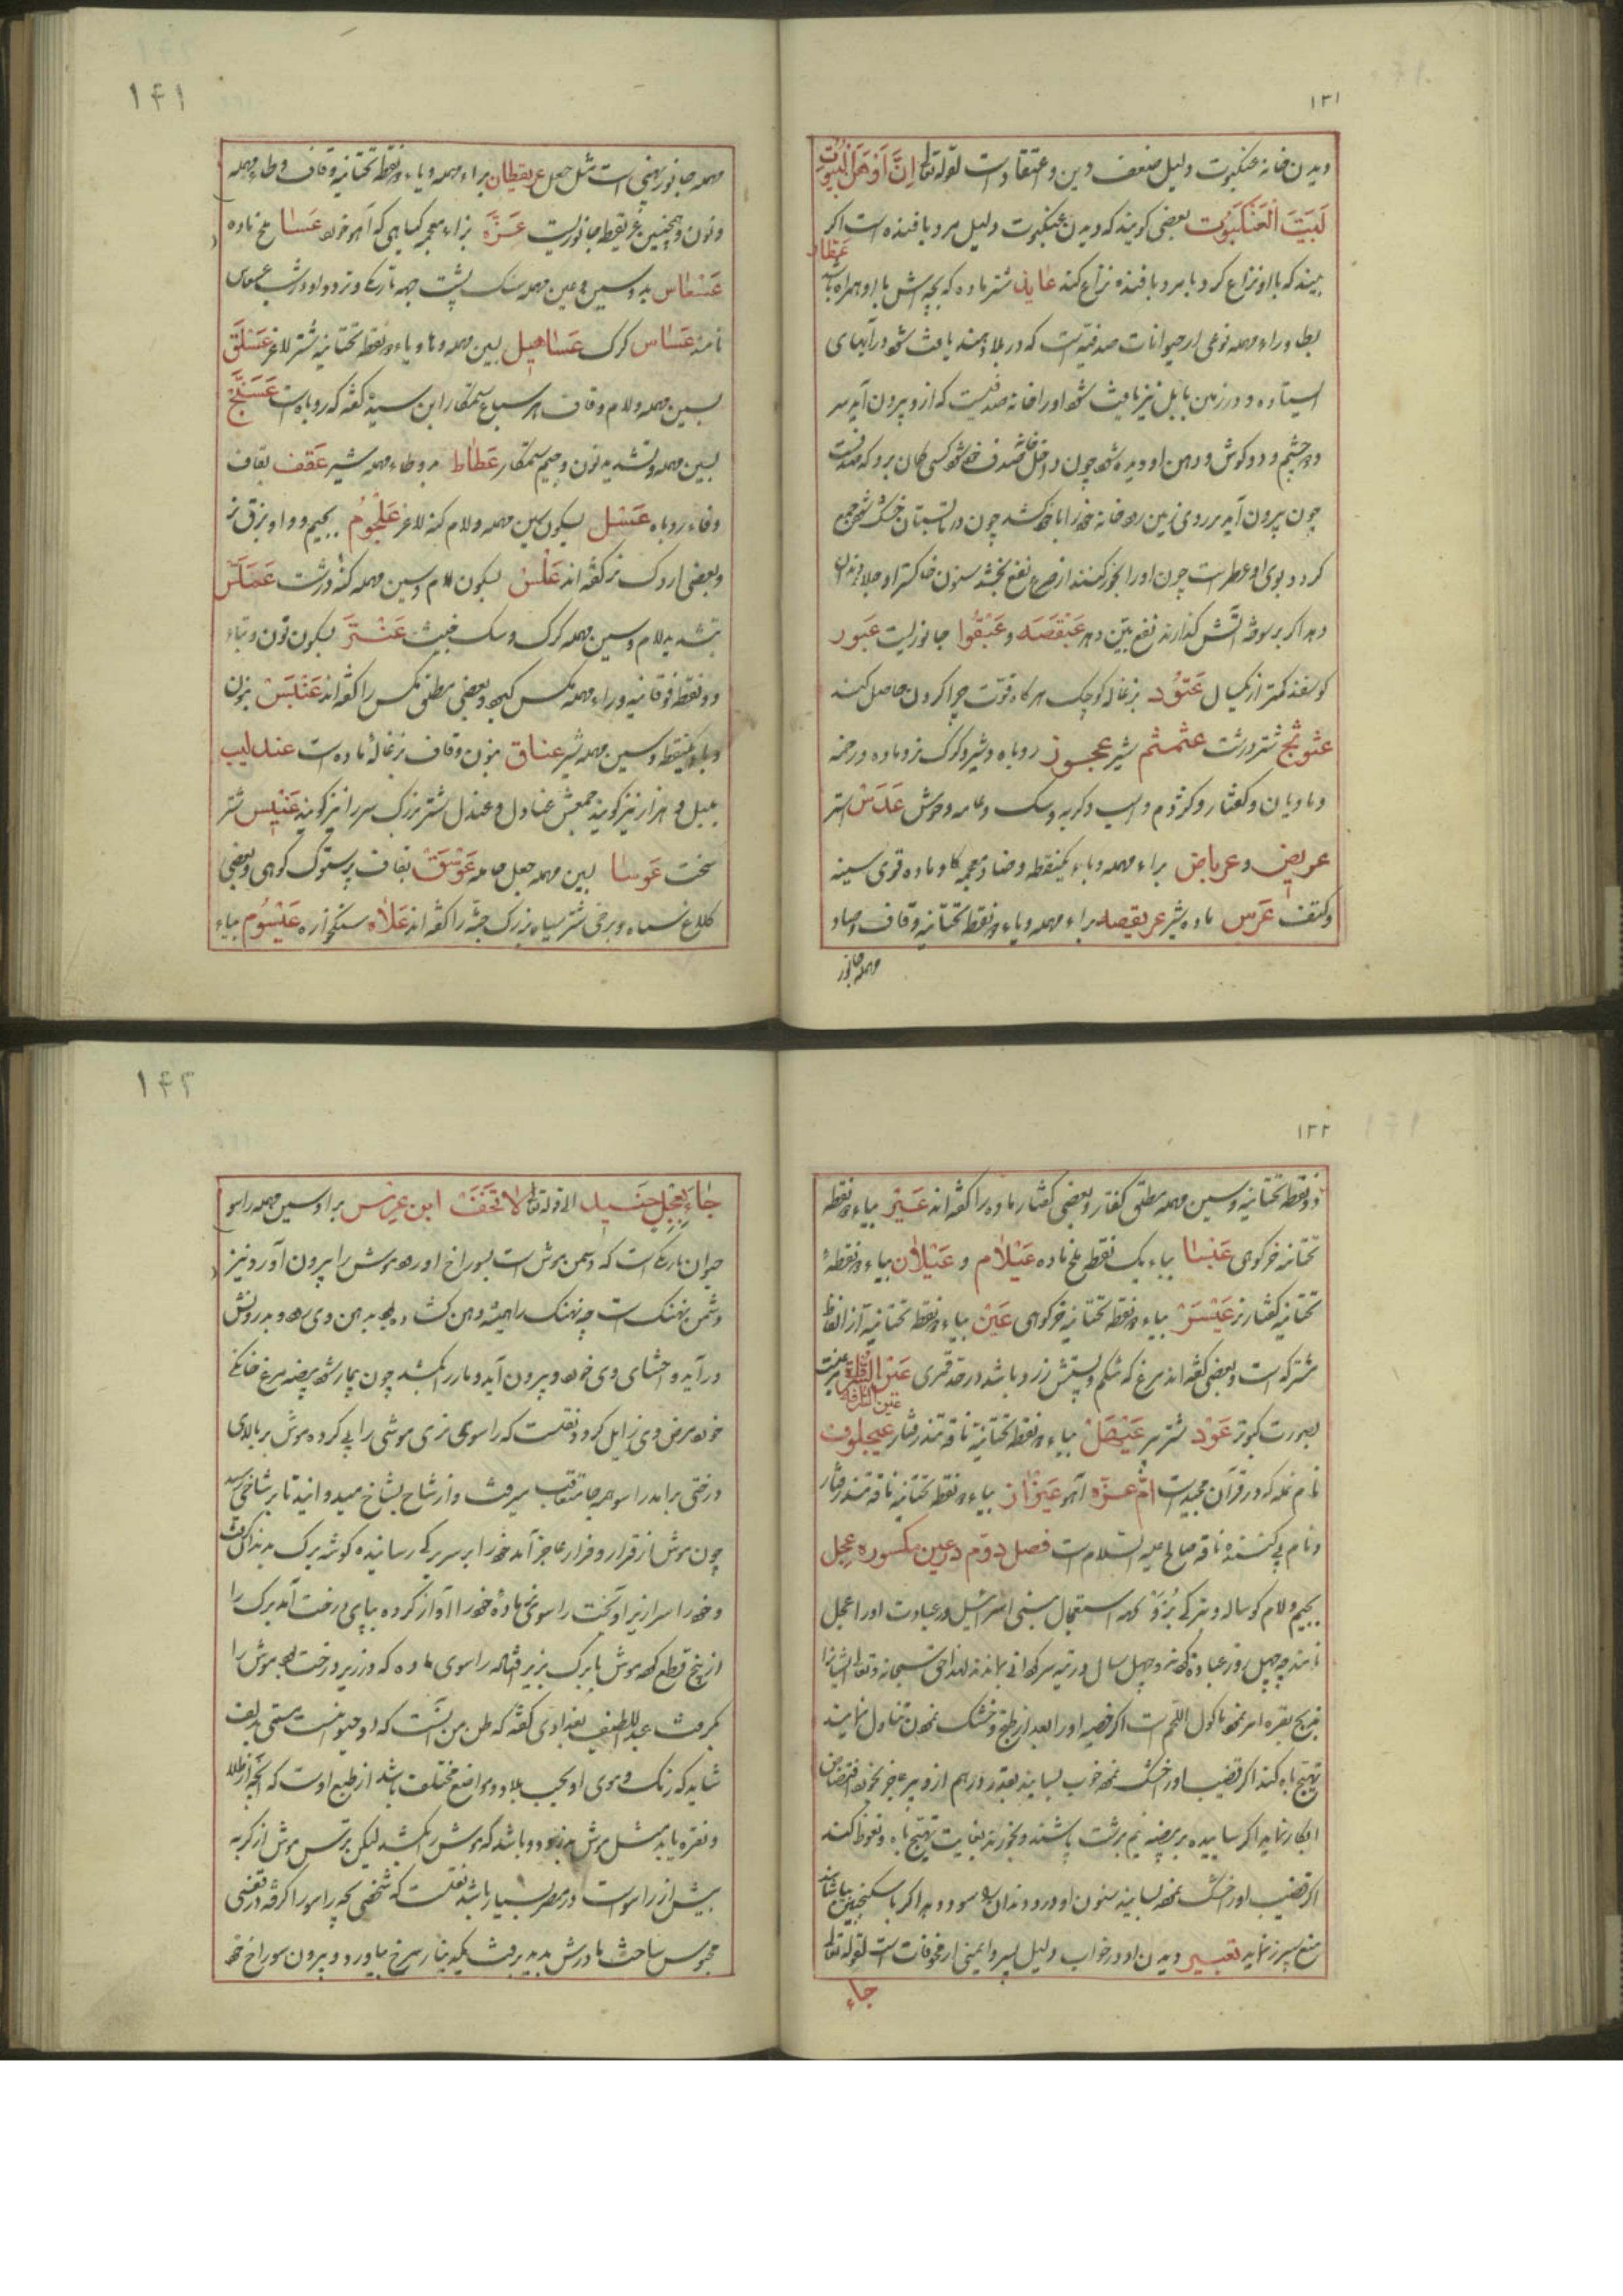 ۱۳۱
دیدن خانه عنکبوت دلیل ضعف دین و اعتقاد است لقوله تعالی اِنَّ اَوْهَنَ الْبُیُوتِ
لَبَیْتُ الْعَنْکَبُوتِ بعضی کویند که دیدن عنکبوت دلیل مرد بافنده است اکر
بیند که با او نزاع کرد با مرد بافنده نزاع کند عایذ شتر ماده که بچه اش با او همراه باشد عَطار
بطا و راء مهمله نوعی از حیوانات صدفیه است که در بلاد هند یافت شود در آبهای
ایستاده و در زمین بابل نیز یافت شود او را خانه صدفیست که از و بیرون آید سر
و دو چشم و دو کوش و دهن او دیده شود چون داخل صدف خود شود کسی کمان برد که صدفست
چون بیرون آید بر روی زمین رود خانه خود را با خود کشد چون در تابستان خشک شود جمع
کردد بوی او عطر است چون او را بخور کنند از صرع نفع بخشد سنون خاکستر او جلای دندان
دهد اکر بر سوخته آتش کذارند نفع بیّن دهد عَبَنْقَصَه و عَبَنْقُوا جانوریست عَبور
کوسفند کمتر از یکسال عَتُود بزغاله کوچک هرکاه قوّت چرا کردن حاصل کند
عثوثج شتر درشت عثمثم شیر عجوز روباه و شیر و کرک نر و ماده و رخمه
و مادیان و کفتار و کژدم و اسب و کربه و سک و عامه وحوش عَدَسْ استر
عریض و عرباض براء مهمله و باء یکنقطه و ضاد معجمه کاو ماده قوی سینه
و کتف عَرس ماده شیر عریقصه براء مهمله و یاء دو نقطه تحتانیه و قاف و صاد
مهمله جانور
۱۴۱
مهمله جانور پهنی است مثل جعل عریقطان براء مهمله و یاء دو نقطه تحتانیه و قاف و طاء مهمله
و نون و همچنین عریقطه جانوریست عَزّه بزاء معجمه کیاهی که آهو خورد عَسا ملخ ماده
عَسْعاس بدو سین و عین مهمله سنک پشت جهه تاریکی و تردد او در شب عسعاس
نامند عَسّاس کرک عَساهیل بسین مهمله و ها و یاء دو نقطه تحتانیه شتر لاغر عَسْلَق
بسین مهمله و لام و قاف هر سباع ستمکار ابن سیده کفته که روباه است عَسَنَّج
بسین مهمله و تشدید نون و جیم ستمکار عَطاط بدو طاء مهمله شیر عَقف بقاف
و فاء روباه عَسْل بسکون سین مهمله و لام کنه لاغر عَلْجُوم بجیم و واو بزق نر
و بعضی اردک نر کفته اند عَلْسْ بسکون لام و سین مهمله کنه درشت عَمَلّس
بتشدید لام و سین مهمله کرک و سک خبیث عَنْتَر بسکون نون و تاء
دو نقطه فوقانیه و راء مهمله مکس کبود و بعضی مطلق مکس را کفته اند عَنْبَسْ بنون
و باء یکنقطه و سین مهمله شیر عناق بنون و قاف بزغالهٔ ماده است عندلیب
بلبل و هزار نیز کویند جمعش عنادل و عندل شتر بزرک سر را نیز کویند عَنْبَس شتر
سخت عَوسا بسین مهمله جعل حامله عَوْسَقْ بقاف پرستوک کوهی و بعضی
کلاغ سیاه و برخی شتر سیاه بزرک جثّه را کفته اند عَلاه سنکخواره عَیْسُوم بیاء
۱۳۲
دو نقطه تحتانیه و سین مهمله مطلق کفتار و بعضی کفتار ماده را کفته اند عَیْر بیاء دو نقطه
تحتانیه خر کوهی عَبْسا بباء یک نقطه ملخ ماده عَیْلام و عَیْلان بیاء دو نقطه
تحتانیه کفتار نر عَیْسَرْ بیاء دو نقطه تحتانیه خر کوهی عَیْن بیاء دو نقطه تحتانیه از الفاظ
مشترکه است و بعضی کفته اند مرغ که شکم و پشتش زرد باشد در حد قمری
بصورت کبوتر عَوْد شتر پیر عَیْهَلْ بیاء دو نقطه تحتانیه ناقه تند رفتار عیجلوف
نام نمله که در قرآن مجید است امّ عزّه آهو عَیْزار بیاء دو نقطه تحتانیه ناقه تند رفتار
و نام پی کننده ناقه صالح علیه السلام است فصل دوّم در عین مکسوره عِجل
بجیم و لام کوساله و بترکی بُزَوْ جهه استعجال بنی اسرائیل در عبادت او را عجل
نامند چه چهل روز عبادة کردند و چهل سال در تیه سرکردانی ماندند
ذبح بقره امر نمود ماکول اللحم است اکر قضیب او را بعد از طبخ و خشک نمودن تناول نمایند
تهیج باه کند اکر قضیب او را خشک نموده خوب بسایند بقدر درهم از و پیر عاجز بخورد افتضاض
ابکار نماید اکر ساییده بر بیضه نیم برشت پاشند و بخورند بغایت تهیّج باه و نعوظ کند
اکر قضیب او را خشک نموده بسایند سنون او درد دندان را سود دهد اکر با سکنجبین بیاشامند
منع سپرز نماید تعبیر دیدن او در خواب دلیل پسر و ایمنی از خوفات است لقوله تعالی
جاء
۱۴۲
جٰاءَ بِعِجْلٍ حَنیذٍ الا قوله تعالی لاتَخَفْ ابن عرس براء و سین مهمله راسو
حیوان باریکی است که دشمن موش است بسوراخ او رود موش را بیرون آورد و نیز
دشمن نهنک است چه نهنک را همیشه دهن کشاده بود بدهن وی رود و بدرونش
در آید و احشای وی خورد و بیرون آید و مار را بکشد چون بیمار شود بیضه مرغ خانکی
خورد مرض وی زایل کردد نقلست که راسوی نری موشی را پی کرده موش بر بالای
درختی برآمد راسو هم جا متعاقب میرفت و از شاخ بشاخ میدوانید تا بر شاخی رسید
چون موش از قرار و فرار عاجز آمد خود را بر سر برکی رسانیده کوشه برک بدندان کرفت
و خود را سرازیر آویخت راسوی نر مادهٔ خود را آواز کرده بپای درخت آمد برک را
از بیخ قطع کرد موش با برک بزیر افتاد راسوی ماده که در زیر درخت بود موش را
بکرفت عبداللطیف بغدادی کفته که ظن من آنست که او حیوانیست مسمّی بدلق
شاید که رنک و موی او بحسب بلاد و مواضع مختلف باشد از طبع اوست که آنچه از طلا
و نقره یابد مثل موش بدزدد و باشد که موش را بکشد لیکن ترس موش از کربه
بیش از راسو است در مصر بسیار باشد نقلست که شخصی بچه راسو را کرفته در قفسی
محبوس ساخت مادرش بدید برفت یکدینار سرخ بیاورد و بیرون سوراخ خود